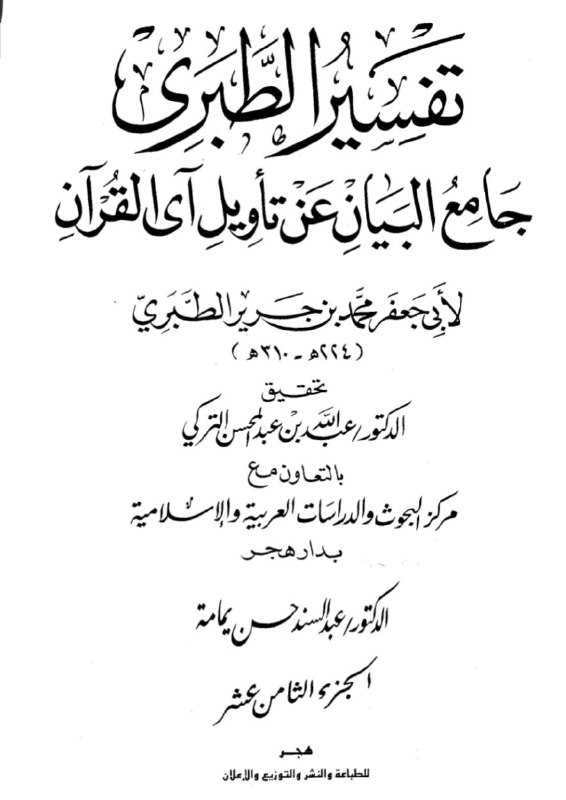 تفسير الطبري
جامع البيان عن تأويل آى القرآن
لأبي جعفر محمد بن جرير الطبري
(٢٢٤ﻫ - ٣١٠ﻫ)
تحقيق
الدكتور/عبد الله بن عبد المحسن التركي
بالتعاون مع
مركز البحوث والدراسات العربية والإسلامية
بدار هجر
الدكتور/عبد السند حسن يمامة
الجزء الثامن عشر
هجر
للطباعة والنشر والتوزيع والإعلان